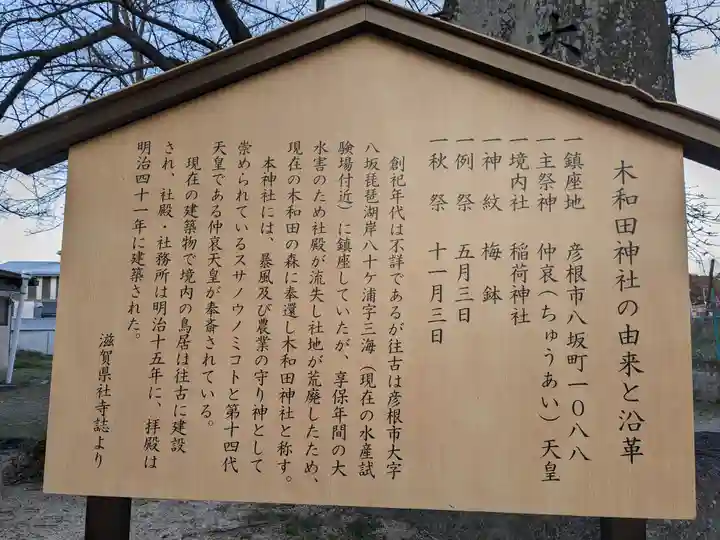 木和田神社の由来と沿革
一鎮座地 彦根市八坂町一〇八八
一主祭神 仲哀(ちゅうあい)天皇
一境内社 稲荷神社
一神紋 梅鉢
一例祭 五月三日
一秋祭 十一月三日
創祀年代は不詳であるが往古は彦根市大字
八坂琵琶湖岸八十ヶ浦字三海(現在の水産試
験場付近)に鎮座していたが、享保年間の大
水害のため社殿が流失し社地が荒廃したため、
現在の木和田の森に奉還し木和田神社と称す。
本神社には、暴風及び農業の守り神として
崇められているスサノウノミコトと第十四代
天皇である仲哀天皇が奉斎されている。
現在の建築物で境内の鳥居は往古に建設
され、社殿・社務所は明治十五年に、拝殿は
明治四十一年に建築された。
滋賀県社寺誌より